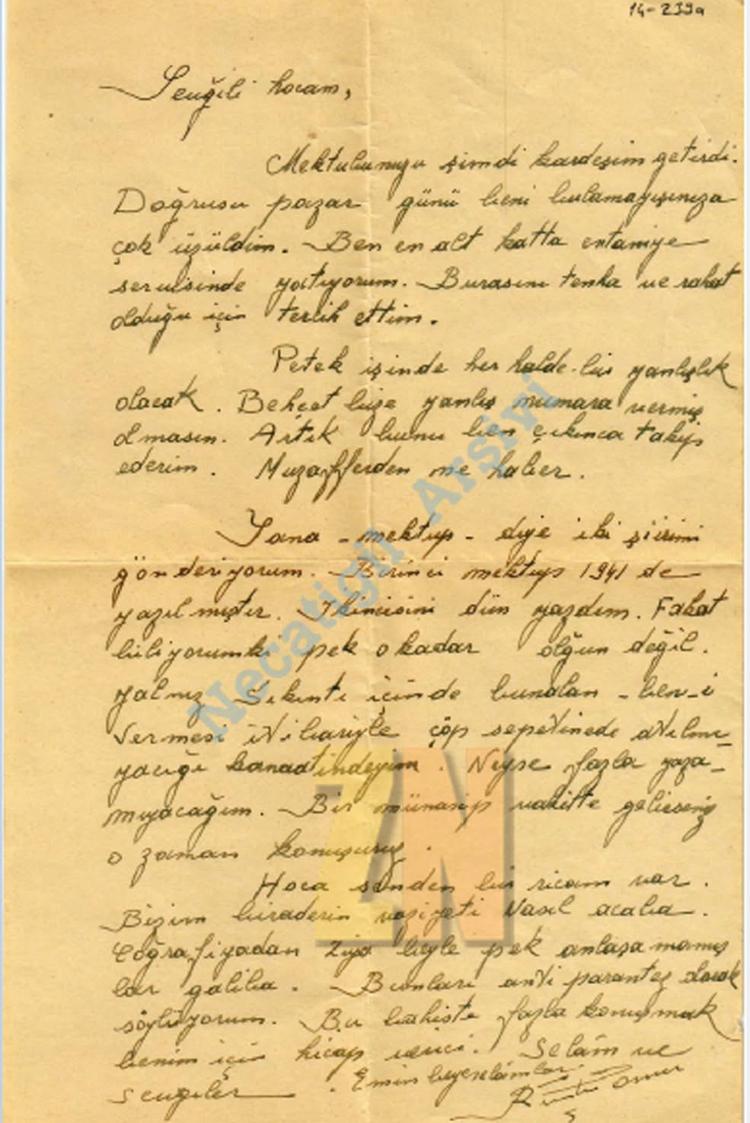 14-239a
Sevgili hocam,
Mektubunuzu şimdi kardeşim getirdi.
Doğrusu pazar günü beni bulamayışınıza
çok üzüldüm. Ben en alt katta entaniye
servisinde yatıyorum. Burasını tenha ve rahat
olduğu için tercih ettim.
Petek işinde her halde bir yanlışlık
olacak. Behçet bize yanlış numara vermiş
olmasın. Artık bunu ben çıkınca takip
ederim. Muzafferden ne haber.
Sana - mektup - diye iki şiirimi
gönderiyorum. Birinci mektup 1941 de
yazılmıştır. İkincisini dün yazdım. Fakat
biliyorumki pek o kadar olğun değil.
Yalnız Sıkıntı içinde bunalan - ben - i
vermesi itibariyle çöp sepetinede atılmı-
yacığı kanaatindeyim. Neyse fazla yaza-
mıyacağım. Bir münasip vakitte gelirseniz
o zaman konuşuruz.
Hoca senden bir ricam var.
Bizim biraderin vaziyeti Nasıl acaba.
Coğrafiyadan Ziya beyle pek anlaşamamış
lar galiba. Bunları anti parantez olarak
söylüyorum. Bu bahiste fazla konuşmak
benim için hicap verici. Selâm ve
sevgiler. Emin beye selâmlar.
Necatigil Arşivi
ZN